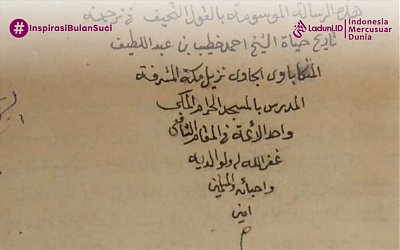 #InspirasiBulanSuci
LADUNI.ID
Indonesia
Mercusuar
Dunia
هذه الرسالة الموسومة بالقول التحيف في ترجمة
تاريخ حياة الشيخ احمد خطيب بن عبد اللطيف
المنكاباوى الجاوى نزيل مكة المشرفة
المدرس بالمسجد الحرام المكي
واحد الائمة في المقام الشافعي
غفر الله له ولوالديه
واحبائه والمسلمين
امين
م